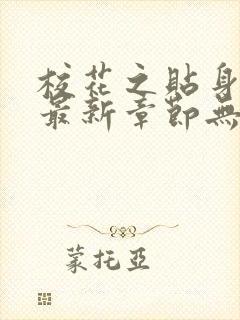 校花之貼身
最新章節無
蒙托亞